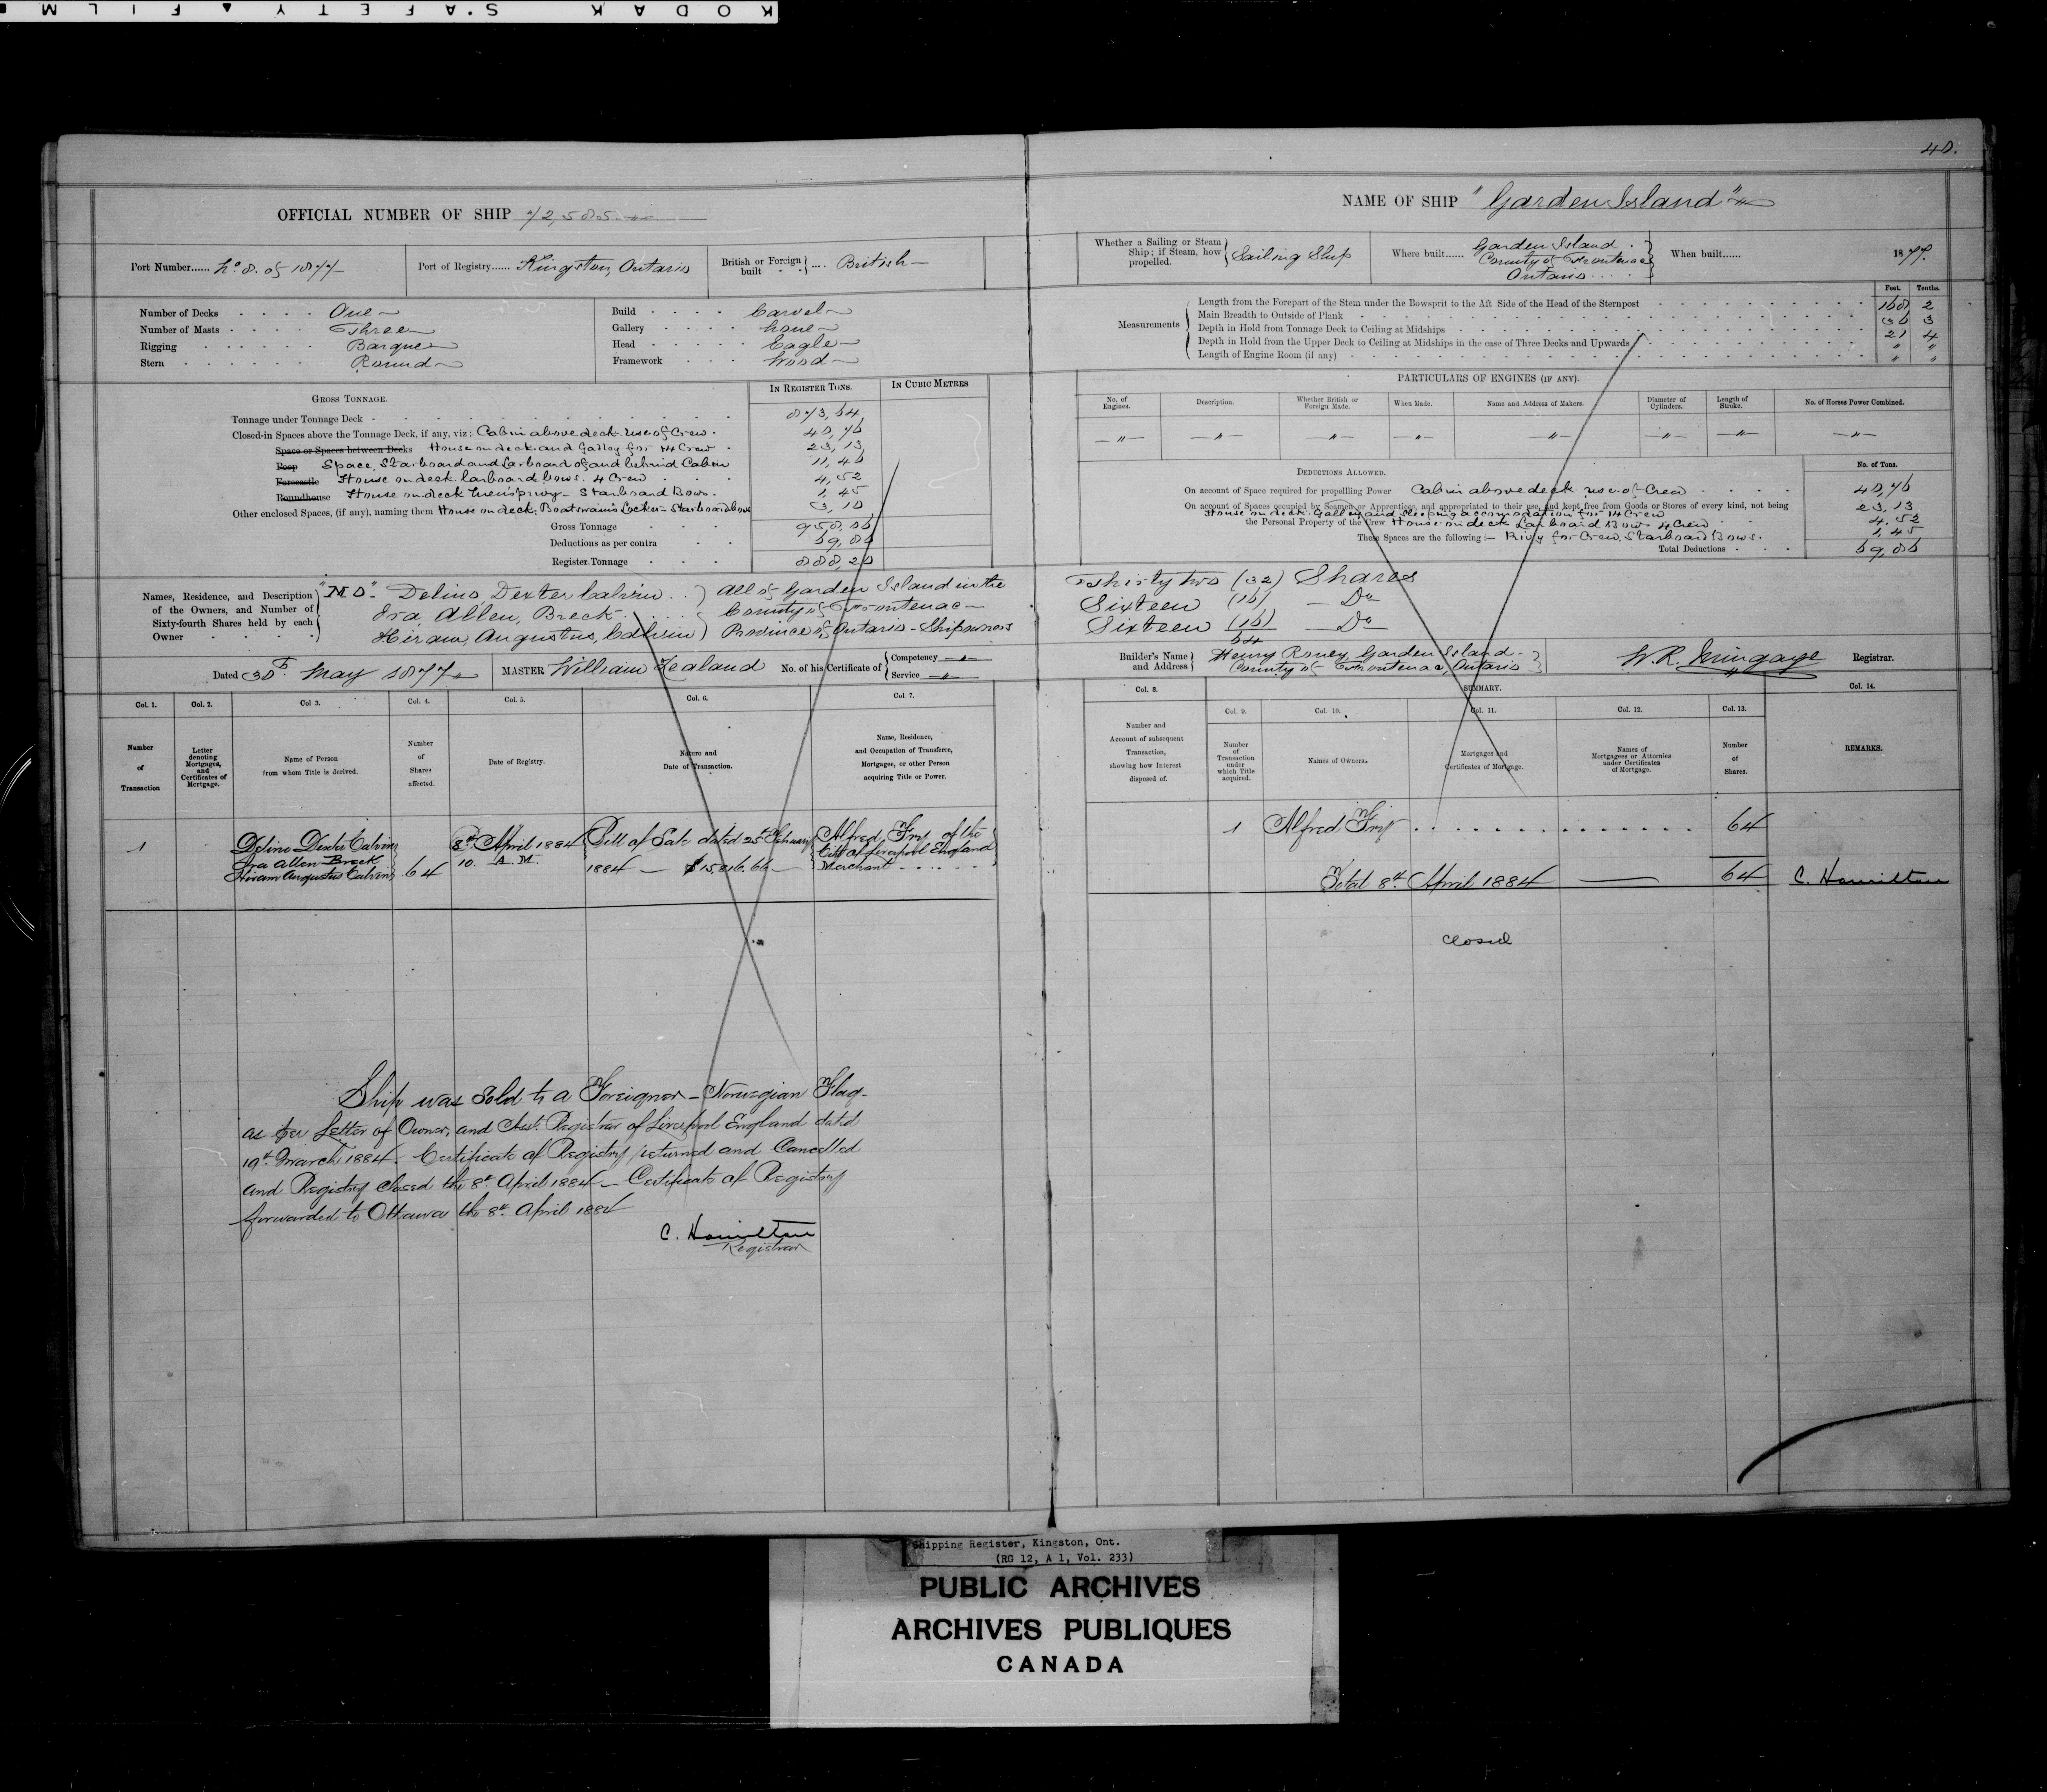 KODAK SAFETY ▲ FILM
40.
OFFICIAL NUMBER OF SHIP 72,585
NAME OF SHIP "Garden Island"
Port Number...... No 8. of 1877
Port of Registry...... Kingston, Ontario
British or Foreign built .... British
Whether a Sailing or Steam Ship; if Steam, how propelled. Sailing Ship
Where built...... Garden Island. County of Frontenac Ontario....
When built...... 1877.
Number of Decks . . . . One
Number of Masts . . . . Three
Rigging . . . . . . Barque
Stern . . . . . . . Round
Build . . . . Carvel
Gallery . . . . None
Head . . . . . Eagle
Framework . . . Wood
Measurements
Feet. Tenths.
Length from the Forepart of the Stem under the Bowsprit to the Aft Side of the Head of the Sternpost 168 2
Main Breadth to Outside of Plank 36 3
Depth in Hold from Tonnage Deck to Ceiling at Midships 21 4
Depth in Hold from the Upper Deck to Ceiling at Midships in the case of Three Decks and Upwards " "
Length of Engine Room (if any) " "
GROSS TONNAGE.
IN REGISTER TONS.
IN CUBIC METRES
Tonnage under Tonnage Deck 873,64
Closed-in Spaces above the Tonnage Deck, if any, viz: Cabin above deck use of Crew 40,76
Space or Spaces between Decks House on deck and Galley for 14 Crew 23,13
Poop Space, Starboard and Larboard of and behind Cabin 11,46
Forecastle House on deck larboard bows. 4 Crew 4,52
Roundhouse House on deck men's privy - Starboard Bows. 1,45
Other enclosed Spaces, (if any), naming them House on deck, Boatswain's Locker - Starboard bow 3,10
Gross Tonnage 958,06
Deductions as per contra 69,86
Register Tonnage 888,20
PARTICULARS OF ENGINES (IF ANY).
No. of Engines.
Description.
Whether British or Foreign Made.
When Made.
Name and Address of Makers.
Diameter of Cylinders.
Length of Stroke.
No. of Horses Power Combined.
— " — — " — — " — — " — — " — — " — — " — — " —
DEDUCTIONS ALLOWED.
No. of Tons.
On account of Space required for propelling Power Cabin above deck use of Crew 40,76
On account of Spaces occupied by Seamen or Apprentices, and appropriated to their use, and kept free from Goods or Stores of every kind, not being
House on deck Galley and sleeping accomodation for 14 Crew 23,13
the Personal Property of the Crew House on deck Larboard Bow 4 Crew 4.52
These Spaces are the following:— Privy for Crew, Starboard Bows. 1,45
Total Deductions 69,86
Names, Residence, and Description of the Owners, and Number of Sixty-fourth Shares held by each Owner
Delino Dexter Calvin . .
Ira, Allen, Breck . . . .
Hiram, Augustus, Calvin
All of Garden Island in the
County of Frontenac
Province of Ontario - Shipowners
Thirty two (32) Shares
Sixteen (16) — Do
Sixteen (16) — Do
64
Dated 30th May 1877
MASTER William Zealand
No. of his Certificate of
Competency — " —
Service — " —
Builder's Name and Address
Henry Roney, Garden Island
County of Frontenac, Ontario
W. R. Mingaye Registrar.
Col. 1. Col. 2. Col 3. Col. 4. Col. 5. Col. 6. Col. 7.
Col. 8. SUMMARY. Col. 14.
Col. 9. Col. 10. Col. 11. Col. 12. Col. 13.
Number of Transaction
Letter denoting Mortgages, and Certificates of Mortgage.
Name of Person from whom Title is derived.
Number of Shares affected.
Date of Registry.
Nature and Date of Transaction.
Name, Residence, and Occupation of Transferee, Mortgagee, or other Person acquiring Title or Power.
Number and Account of subsequent Transaction, showing how Interest disposed of.
Number of Transaction under which Title acquired.
Names of Owners.
Mortgages and Certificates of Mortgage.
Names of Mortgagees or Attornies under Certificates of Mortgage.
Number of Shares.
REMARKS.
1
Delino Dexter Calvin
Ira Allen Breck
Hiram Augustus Calvin
64
8th April 1884
10. A.M.
Bill of Sale dated 25th February
1884 — $15,816.66 —
Alfred of the
City of Liverpool England
Merchant . . . . .
1 Alfred . . . . . . . . . . . . . . . 64
Total 8th April 1884 — 64 C. Hamilton
Closed
Ship was Sold to a Foreigner - Norwegian Flag -
as per Letter of Owner, and Asst. Registrar of Liverpool England dated
19th March 1884. Certificate of Registry returned and Cancelled
and Registry closed the 8th April 1884 — Certificate of Registry
forwarded to Ottawa the 8th April 1884
C. Hamilton
Registrar
Shipping Register, Kingston, Ont.
(RG 12, A 1, Vol. 233)
PUBLIC ARCHIVES
ARCHIVES PUBLIQUES
CANADA